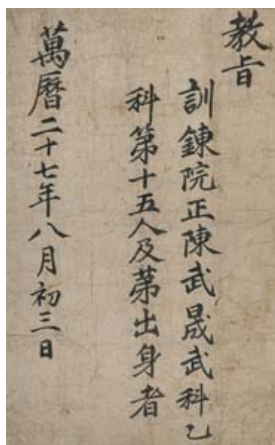 教旨
訓鍊院正陳武晟武科乙
科第十五人及第出身者
萬曆二十七年八月初三日